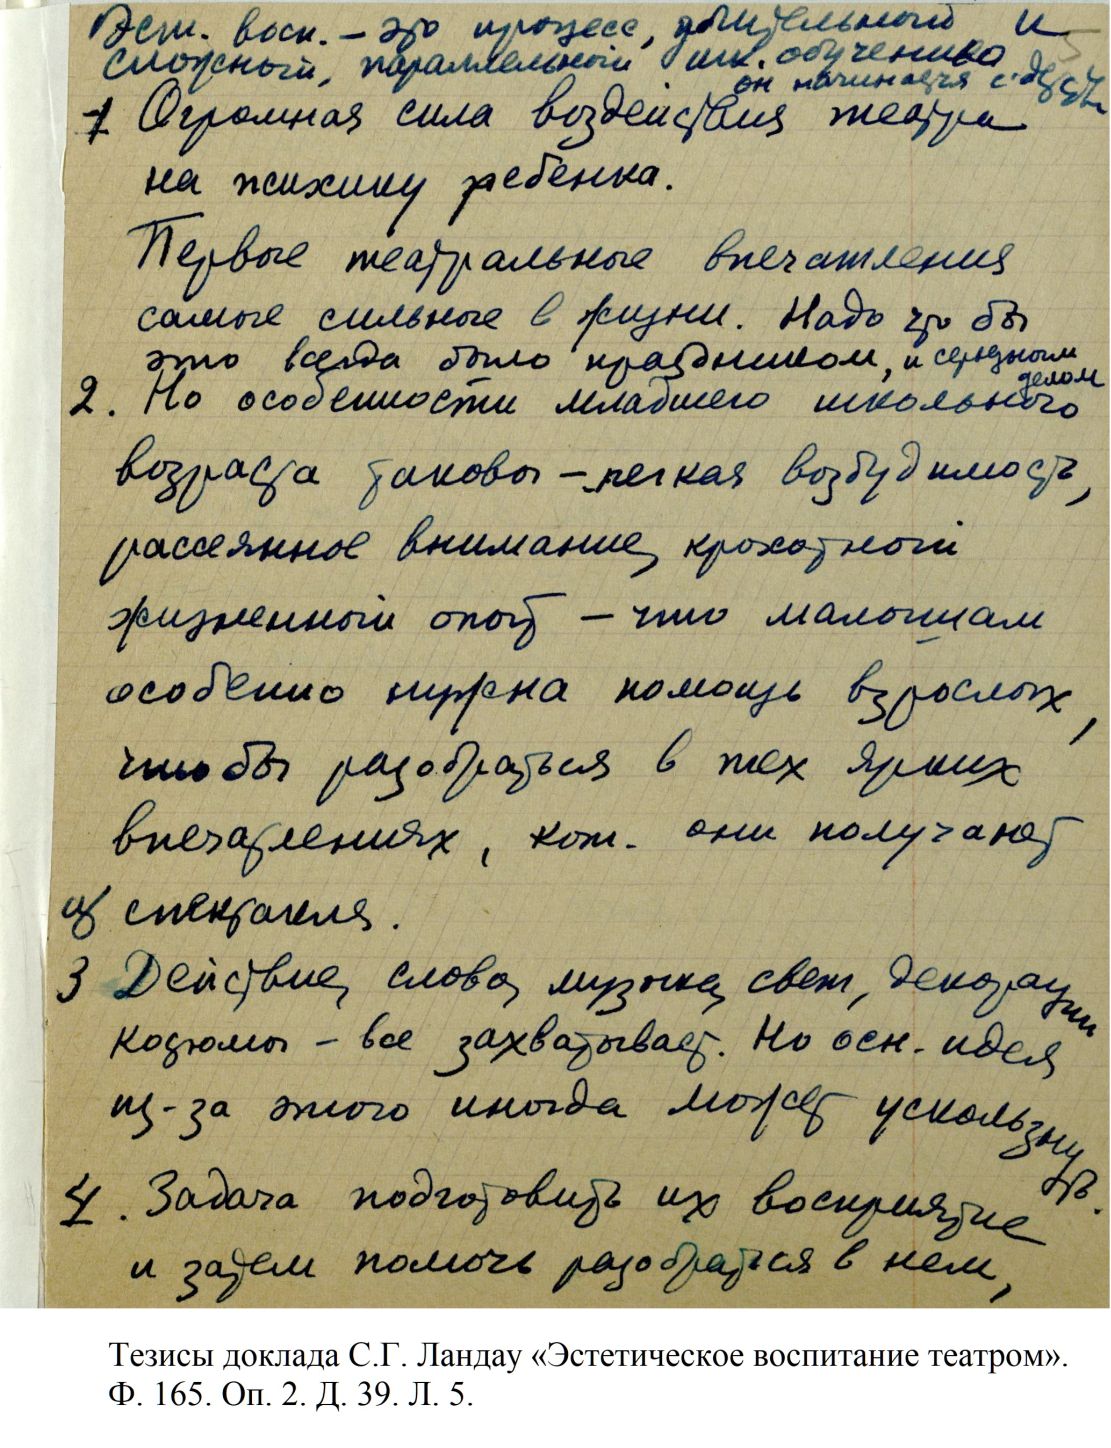 Эст. восп. – это процесс, длительный и
сложный, параллельный шк. обучению
он начинается с детства
1 Огромная сила воздействия театра
на психику ребенка.
Первые театральные впечатления
самые сильные в жизни. Надо что бы
это всегда было праздником, и серьезным
делом
2. Но особенности младшего школьного
возраста таковы – легкая возбудимость,
рассеянное внимание, крохотный
жизненный опыт – что малышам
особенно нужна помощь взрослых,
чтобы разобраться в тех ярких
впечатлениях, кот. они получают
из спектакля.
3 Действие, слово, музыка, свет, декорации
костюмы – все захватывает. Но осн. идея
из-за этого иногда может ускользнуть.
4. Задача подготовить их восприятие
и затем помочь разобраться в нем,
Тезисы доклада С.Г. Ландау «Эстетическое воспитание театром».
Ф. 165. Оп. 2. Д. 39. Л. 5.